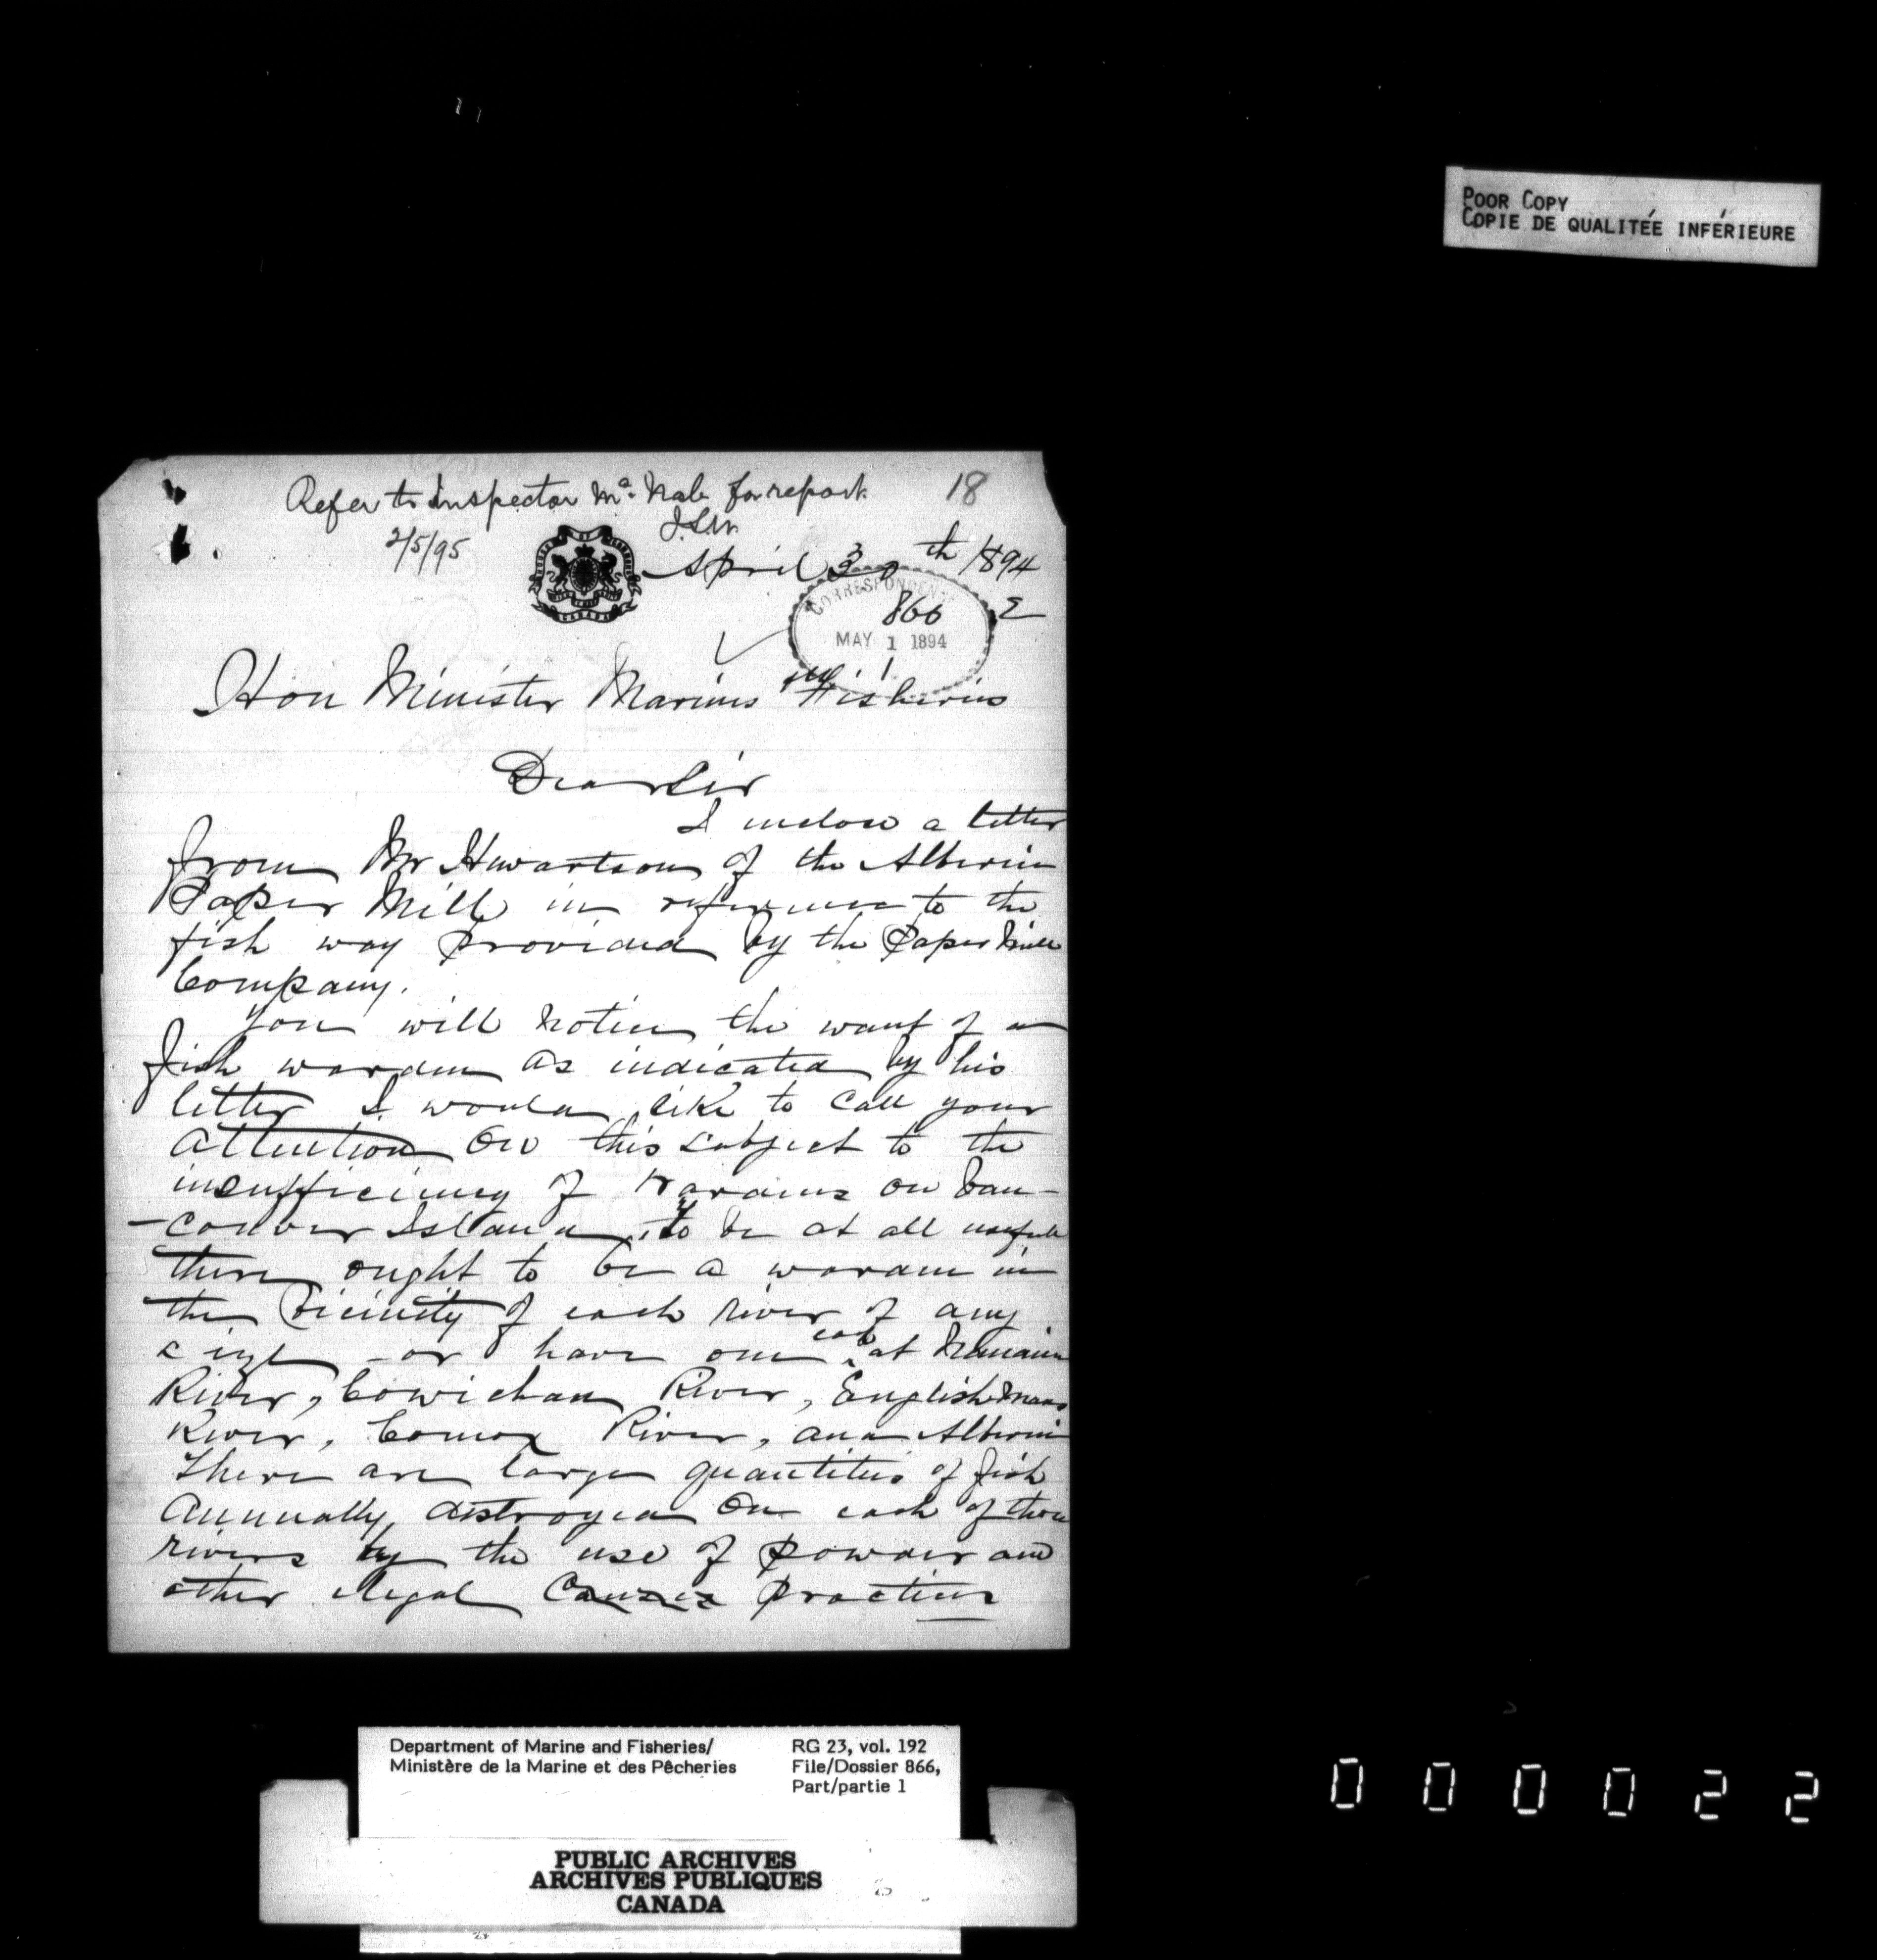 POOR COPY
COPIE DE QUALITÉE INFÉRIEURE
Refer to Inspector McNab for report. 18
2/5/95
HOUSE OF COMMONS
CANADA
April 30th 1894
CORRESPONDENCE
866
MAY 1 1894
Hon Minister Marine & Fisheries
Dear Sir
I inclose a letter
from Mr of the Alberni
Paper Mill in reference to the
fish way provided by the Paper Mill
Company.
You will notice the want of a
fish warden as indicated by his
letter I would like to call your
attention on this subject to the
insufficiency of wardens on Van-
-couver Island, to be at all usefull
there ought to be a warden in
the vicinity of each river of any
size - or have one each at Nanaimo
River, Cowichan River, Englishmans
River, Comox River, and Alberni
There are large quantities of fish
annually destroyed on each of these
rivers by the use of powder and
other illegal causes practices
Department of Marine and Fisheries/
Ministère de la Marine et des Pêcheries
RG 23, vol. 192
File/Dossier 866,
Part/partie 1
PUBLIC ARCHIVES
ARCHIVES PUBLIQUES
CANADA
000022